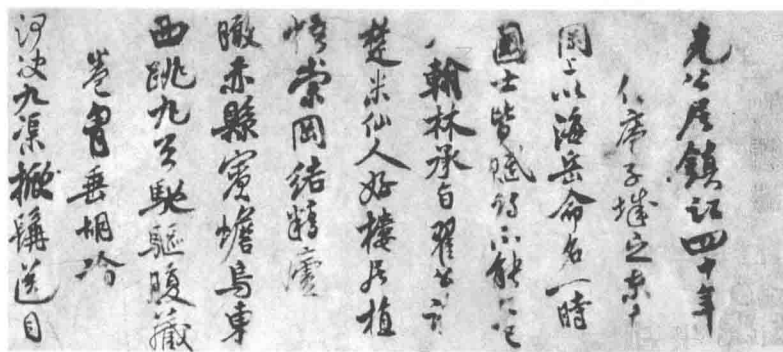 先公居鎮江四十年
作庵于城之東
岡上以海岳命名一時
國士皆賦詩不能盡記
翰林承旨翟公詩
楚米仙人好樓居植
梧崇岡結精廬
瞰赤縣賓蟾烏東
西跳丸天馳驅腹藏
卷胷垂胡論
河決九渠掀髯送目